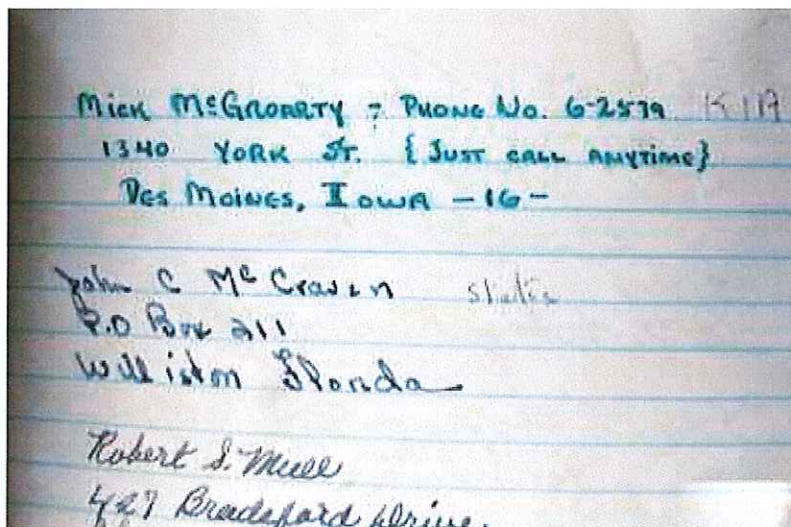 Mick McGroarty - Phone No. 6-2579 KIA
1340 York St. {Just call anytime}
Des Moines, Iowa -16-
John C McCraven
P.O Box 211
Williston Florida
Robert S. Mull
427 Bradsford Drive.